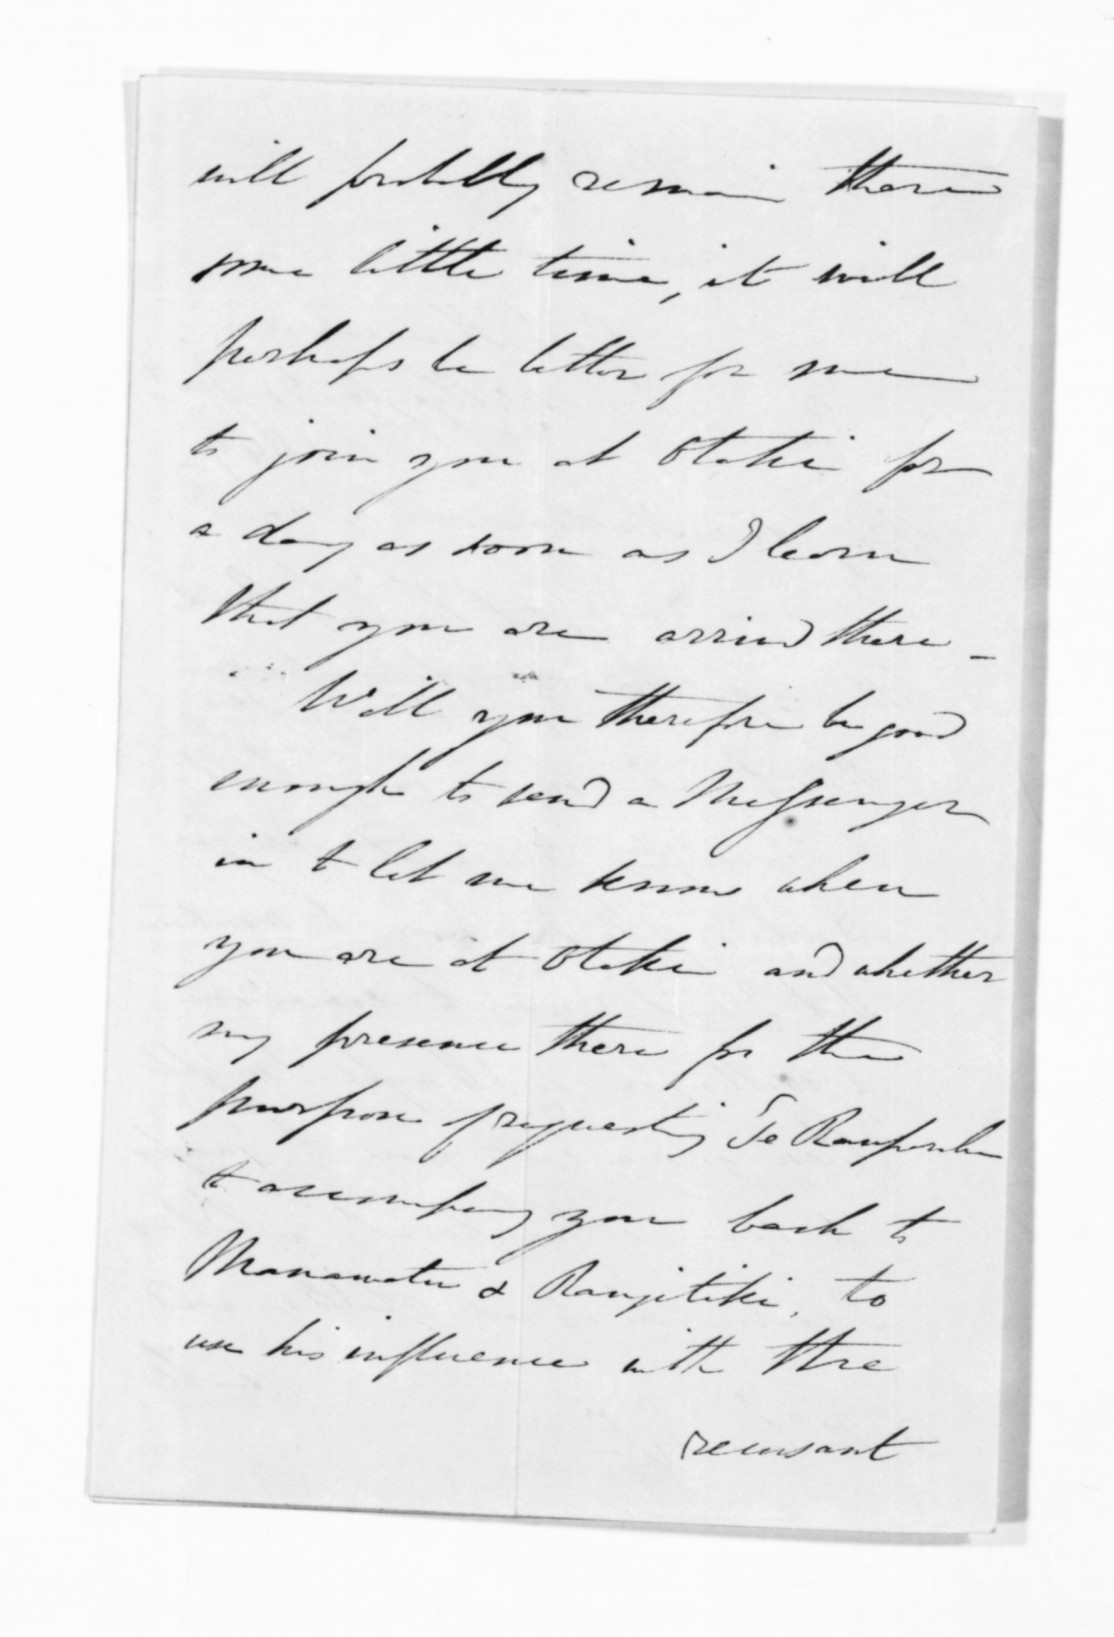 will probably remain there
some little time, it will
perhaps be better for me
to join you at Otaki for
a day as soon as I learn
that you are arrived there _
Will you therefore be good
enough to send a Messenger
in to let me know when
you are at Otaki and whether
my presence there for the
purpose of requesting Te Rauperaha
to accompany you back to
Manawatu & Rangitiki, to
use his influence with the
recusant